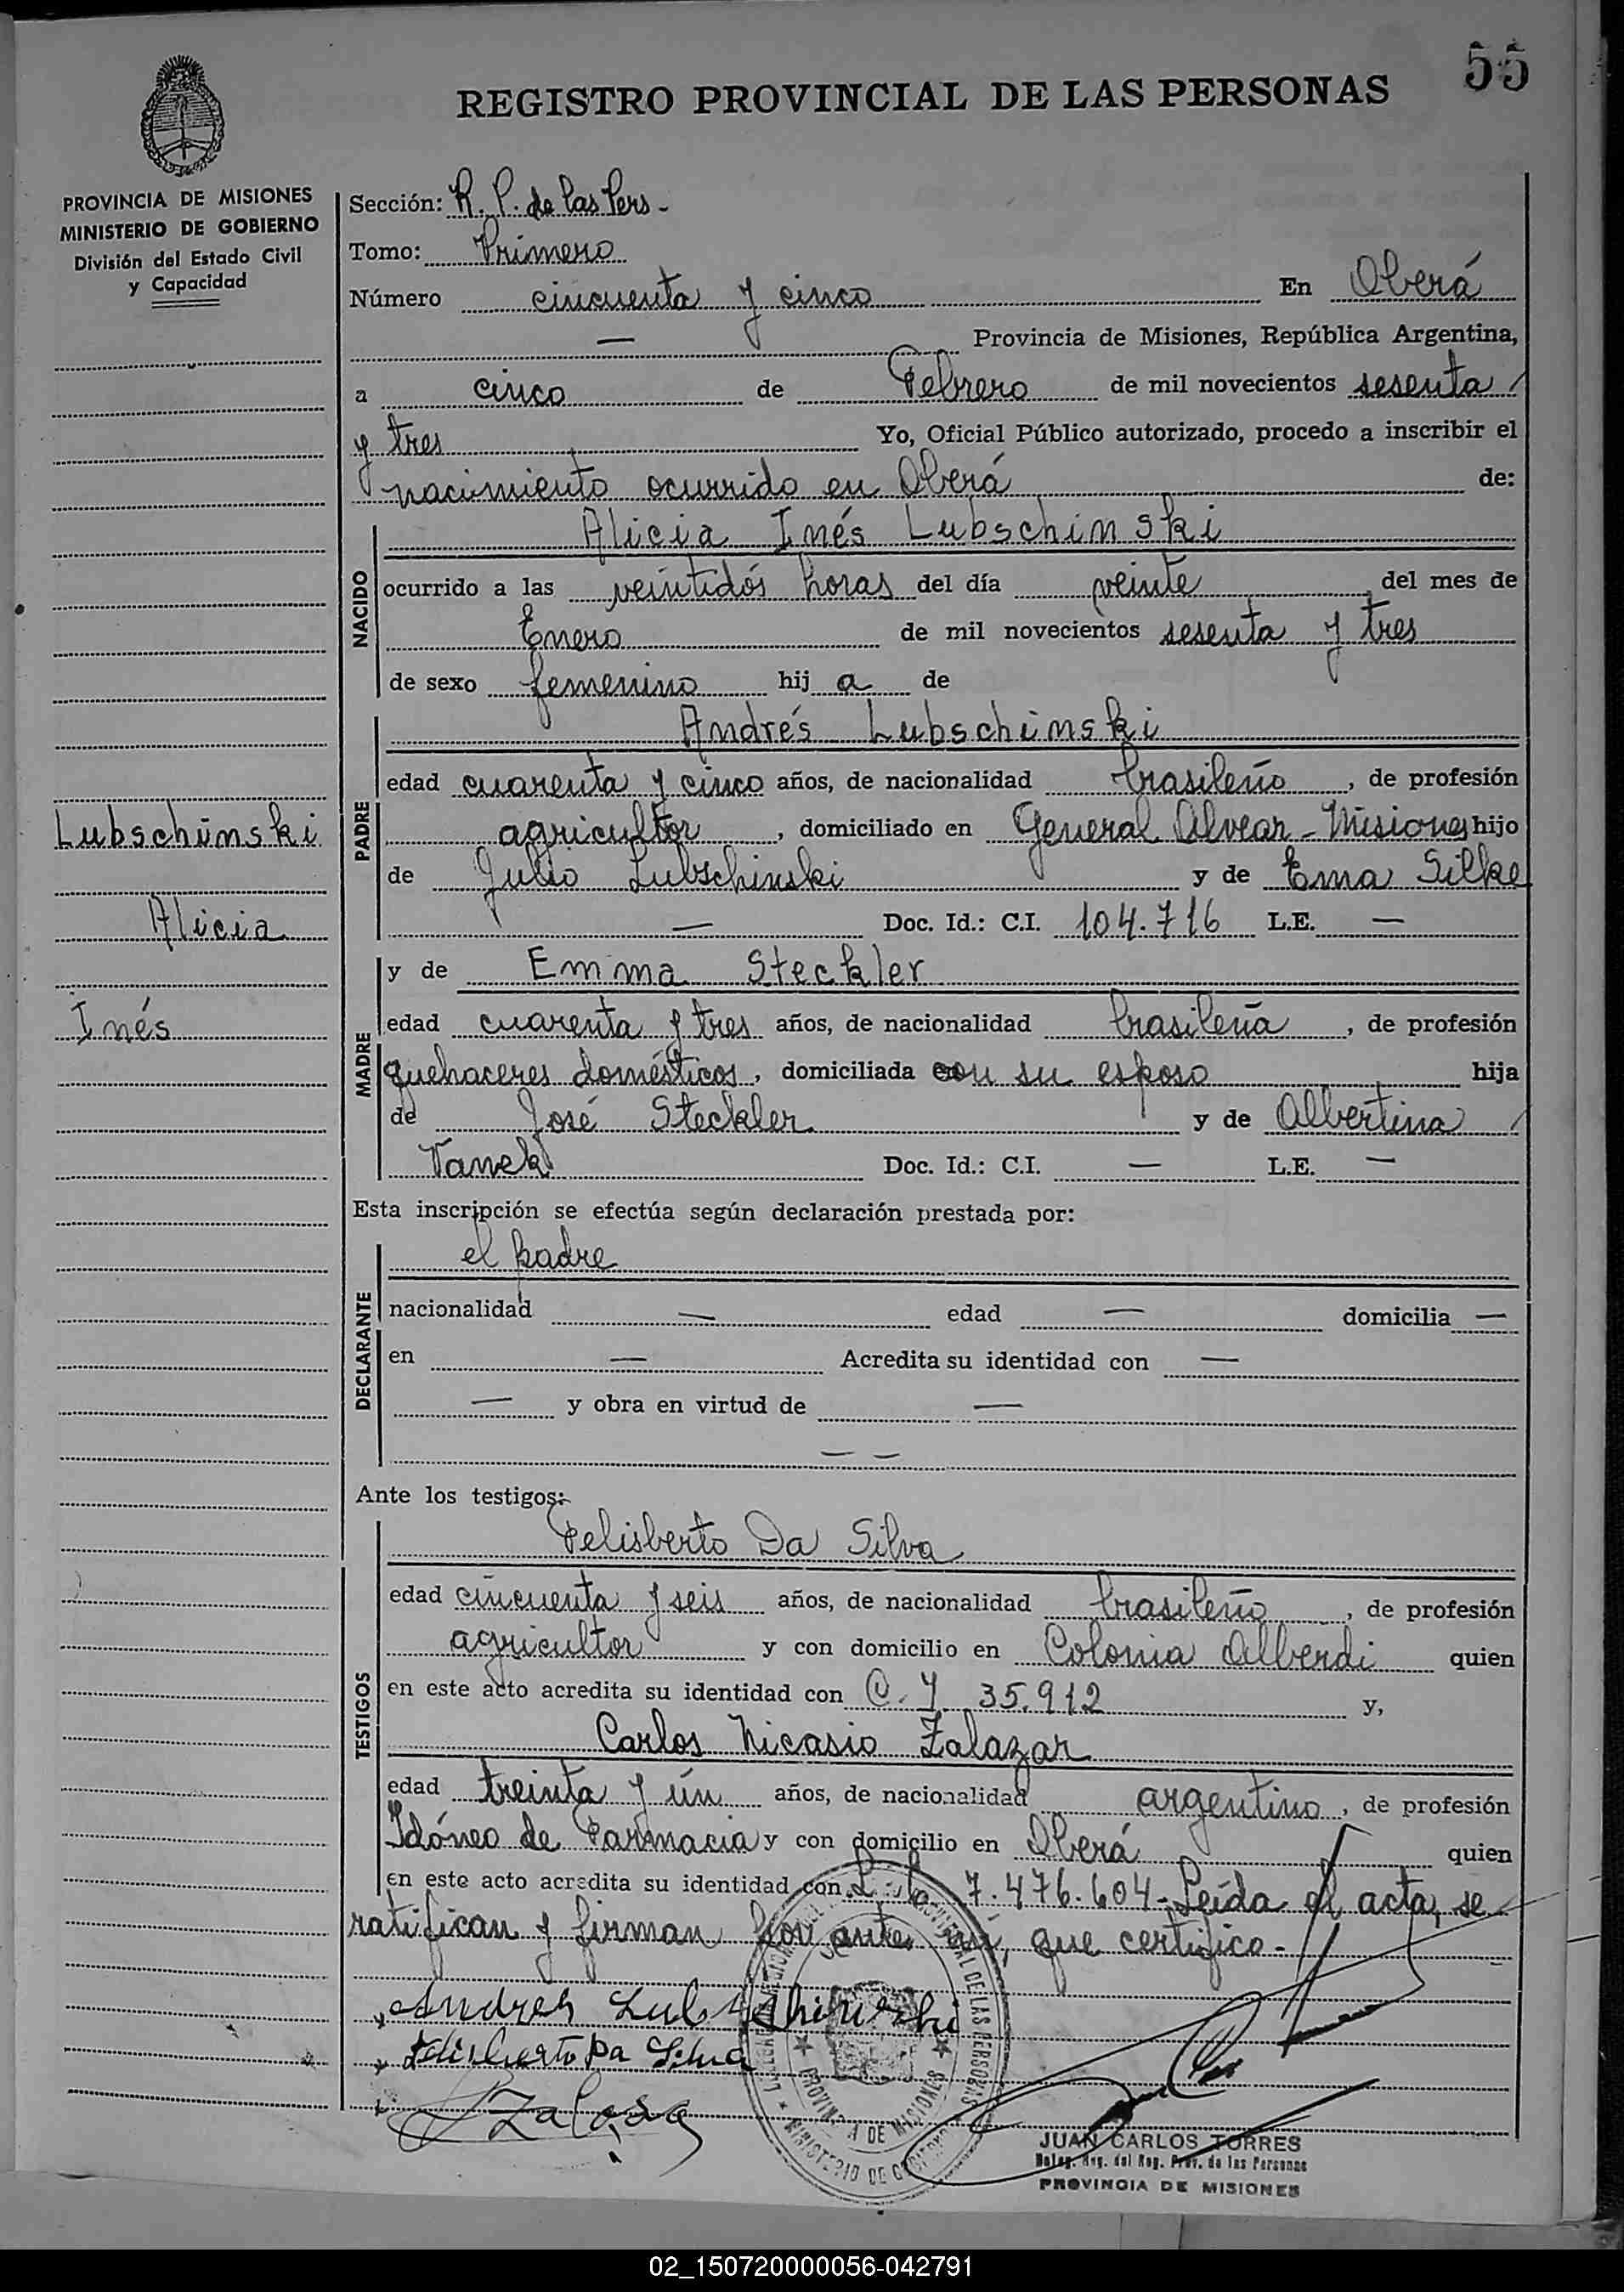 55
REGISTRO PROVINCIAL DE LAS PERSONAS
PROVINCIA DE MISIONES
MINISTERIO DE GOBIERNO
División del Estado Civil
y Capacidad
Lubschinski
Alicia
Inés
Sección: R. P. de las Pers -
Tomo: Primero
Número cincuenta y cinco En Oberá
— Provincia de Misiones, República Argentina,
a cinco de Febrero de mil novecientos sesenta /
y tres Yo, Oficial Público autorizado, procedo a inscribir el
nacimiento ocurrido en Oberá de:
NACIDO
Alicia Inés Lubschinski
ocurrido a las veintidós horas del día veinte del mes de
Enero de mil novecientos sesenta y tres
de sexo femenino hij a de
PADRE
Andrés Lubschinski
edad cuarenta y cinco años, de nacionalidad brasileño, de profesión
agricultor, domiciliado en General Alvear - Misiones hijo
de Julio Lubschinski y de Ema Silke
— Doc. Id.: C.I. 104.716 L.E. —
MADRE
y de Emma Steckler
edad cuarenta y tres años, de nacionalidad brasileña, de profesión
quehaceres domésticos, domiciliada con su esposo hija
de José Steckler y de Albertina /
Doc. Id.: C.I. — L.E. —
Esta inscripción se efectúa según declaración prestada por:
DECLARANTE
el padre
nacionalidad — edad — domicilia —
en — Acredita su identidad con —
— y obra en virtud de —
— —
Ante los testigos:
TESTIGOS
Felisberto Da Silva
edad cincuenta y seis años, de nacionalidad brasileño, de profesión
agricultor y con domicilio en Colonia Alberdi quien
en este acto acredita su identidad con C. I 35.912 y,
Carlos Nicasio Zalazar
edad treinta y ún años, de nacionalidad argentino, de profesión
Idóneo de Farmacia y con domicilio en Oberá quien
en este acto acredita su identidad con L. E. 7.476.604 - Leída el acta, se
ratifican y firman por ante mi, que certifico -
Andres Lubschinski
Felisberto Da Silva
Zalazar
PROVINCIA DE MISIONES
MINISTERIO DE GOBIERNO
JUAN CARLOS TORRES
Deleg. Reg. del Reg. Prov. de las Personas
PROVINCIA DE MISIONES
02_150720000056-042791